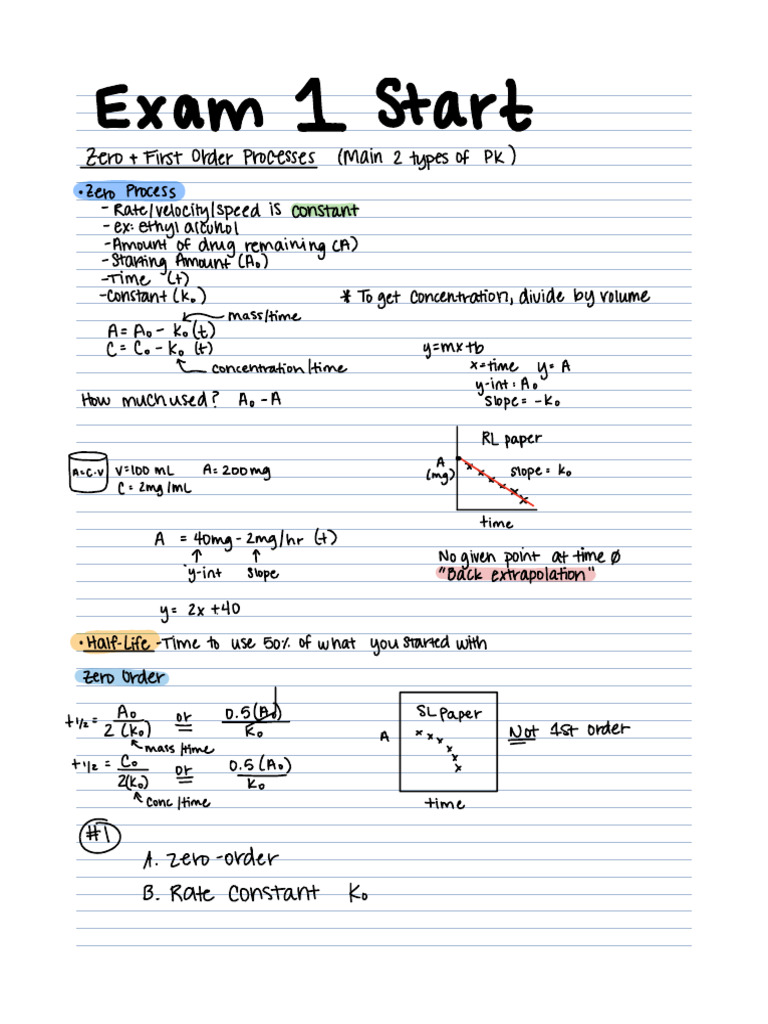 Exam 1 Start
Zero + First Order Processes (Main 2 types of PK)
• Zero Process
- Rate/velocity/speed is constant
- ex: ethyl alcohol
- Amount of drug remaining (A)
- Starting Amount (A₀)
- Time (t)
- Constant (K₀)
* To get concentration, divide by volume
mass/time
A = A₀ - K₀ (t)
C = C₀ - K₀ (t)
concentration/time
y=mx+b
x=time y = A
y-int: A₀
slope = -K₀
How much used? A₀ - A
RL paper
A
(mg)
slope = K₀
time
A=C·V
V=100 mL A= 200mg
C = 2mg/mL
A = 40mg - 2mg/hr (t)
y-int slope
No given point at time Ø
"Back extrapolation"
y = 2x +40
• Half-Life - Time to use 50% of what you started with
Zero Order
t 1/2 = A₀ / 2 (K₀) or 0.5 (A₀) / K₀
mass/time
t 1/2 = C₀ / 2(K₀) or 0.5 (A₀) / K₀
conc/time
SL Paper
A
time
Not 1st order
#1
A. Zero-order
B. Rate constant K₀